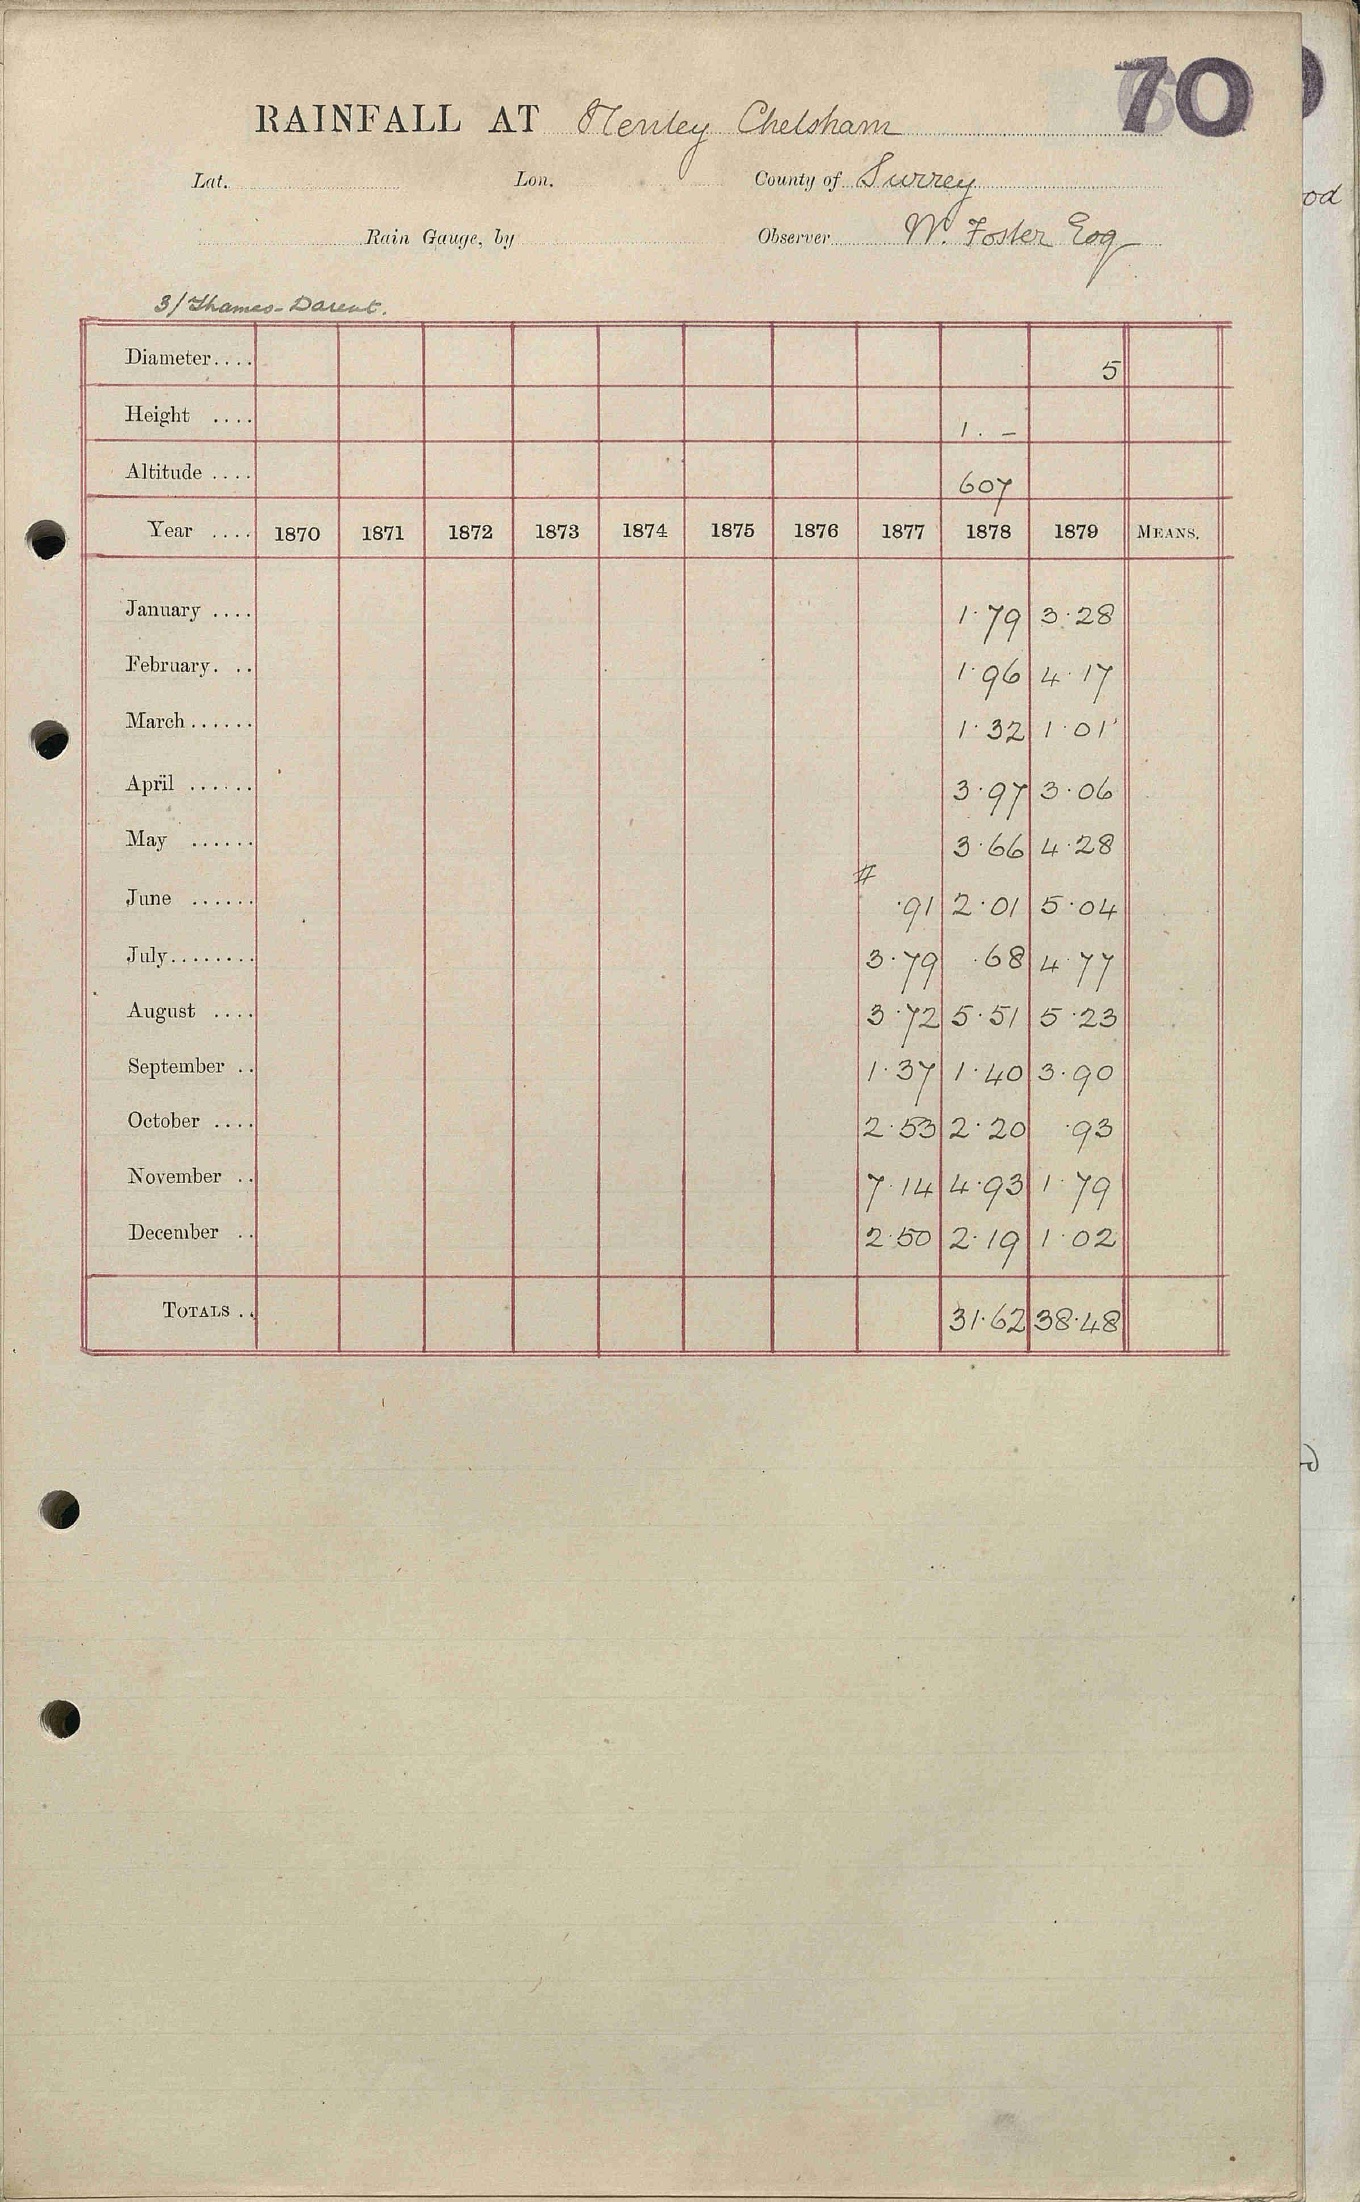 70
RAINFALL AT Henley Chelsham
Lat. Lon. County of Surrey
Rain Gauge, by Observer W. Foster Esq
od
3/Thames-Darent.
Diameter.... 5
Height .... 1. –
Altitude .... 607
Year .... 1870 1871 1872 1873 1874 1875 1876 1877 1878 1879 MEANS.
January .... 1.79 3.28
February. .. 1.96 4.17
March...... 1.32 1.01
April ...... 3.97 3.06
May ...... 3.66 4.28
#
June ...... .91 2.01 5.04
July........ 3.79 .68 4.77
August .... 3.72 5.51 5.23
September .. 1.37 1.40 3.90
October .... 2.53 2.20 .93
November .. 7.14 4.93 1.79
December .. 2.50 2.19 1.02
TOTALS .. 31.62 38.48